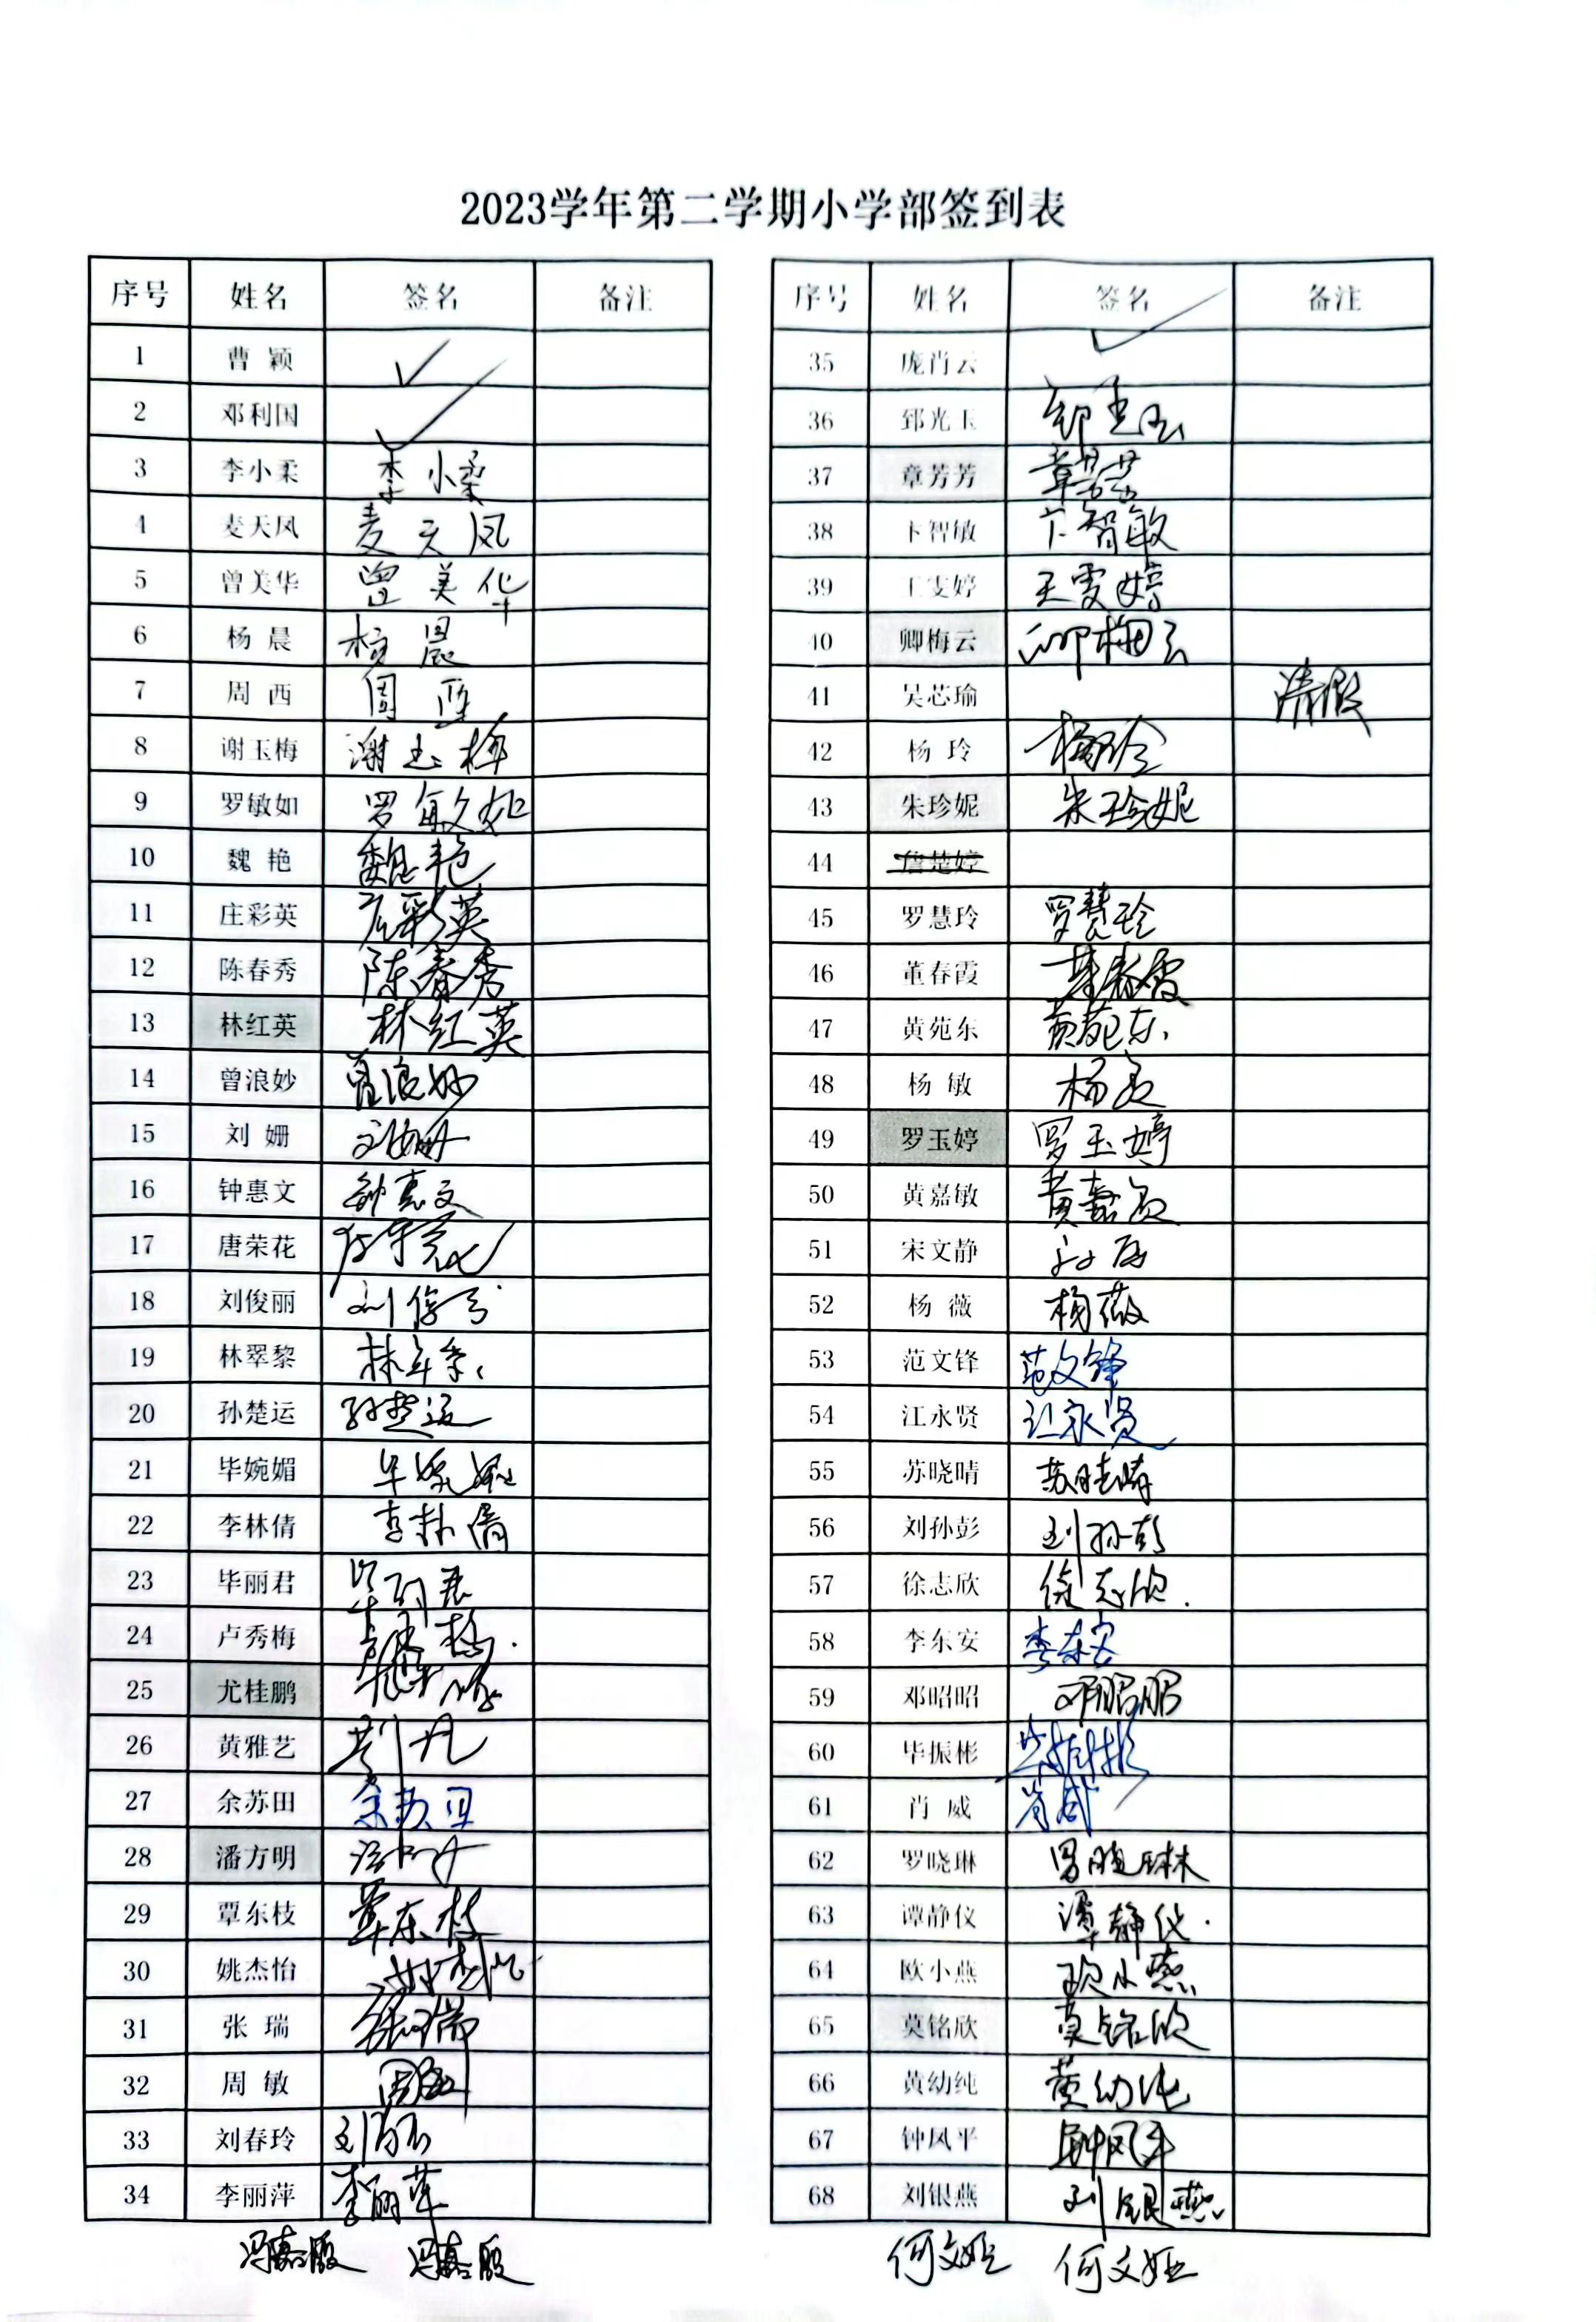 2023学年第二学期小学部签到表
序号 姓名 签名 备注
1 曹颖 ✓
2 邓利国 ✓
3 李小柔 李小柔
4 麦天凤 麦天凤
5 曾美华 曾美华
6 杨晨 杨晨
7 周西 周西
8 谢玉梅 谢玉梅
9 罗敏如 罗敏如
10 魏艳 魏艳
11 庄彩英 庄彩英
12 陈春秀 陈春秀
13 林红英 林红英
14 曾浪妙 曾浪妙
15 刘姗 刘姗
16 钟惠文 钟惠文
17 唐荣花 唐荣花
18 刘俊丽 刘俊丽
19 林翠黎 林翠黎
20 孙楚运 孙楚运
21 毕婉媚 毕婉媚
22 李林倩 李林倩
23 毕丽君 毕丽君
24 卢秀梅 卢秀梅
25 尤桂鹏
26 黄雅艺
27 余苏田 余苏田
28 潘方明
29 覃东枝 覃东枝
30 姚杰怡 姚杰怡
31 张瑞 张瑞
32 周敏 周敏
33 刘春玲
34 李丽萍 李丽萍
冯嘉殷 冯嘉殷
序号 姓名 签名 备注
35 庞肖云 ✓
36 郅光玉 郅光玉
37 章芳芳 章芳芳
38 卞智敏 卞智敏
39 王雯婷 王雯婷
40 卿梅云 卿梅云
41 吴芯瑜 请假
42 杨玲 杨玲
43 朱珍妮 朱珍妮
44 詹楚婷
45 罗慧玲 罗慧玲
46 董春霞 董春霞
47 黄苑东 黄苑东
48 杨敏 杨敏
49 罗玉婷 罗玉婷
50 黄嘉敏 黄嘉敏
51 宋文静
52 杨薇 杨薇
53 范文锋 范文锋
54 江永贤 江永贤
55 苏晓晴 苏晓晴
56 刘孙彭 刘孙彭
57 徐志欣 徐志欣
58 李东安 李东安
59 邓昭昭 邓昭昭
60 毕振彬 毕振彬
61 肖威 肖威
62 罗晓琳 罗晓琳
63 谭静仪 谭静仪
64 欧小燕 欧小燕
65 莫铭欣 莫铭欣
66 黄幼纯 黄幼纯
67 钟凤平 钟凤平
68 刘银燕 刘银燕
何文娅 何文娅